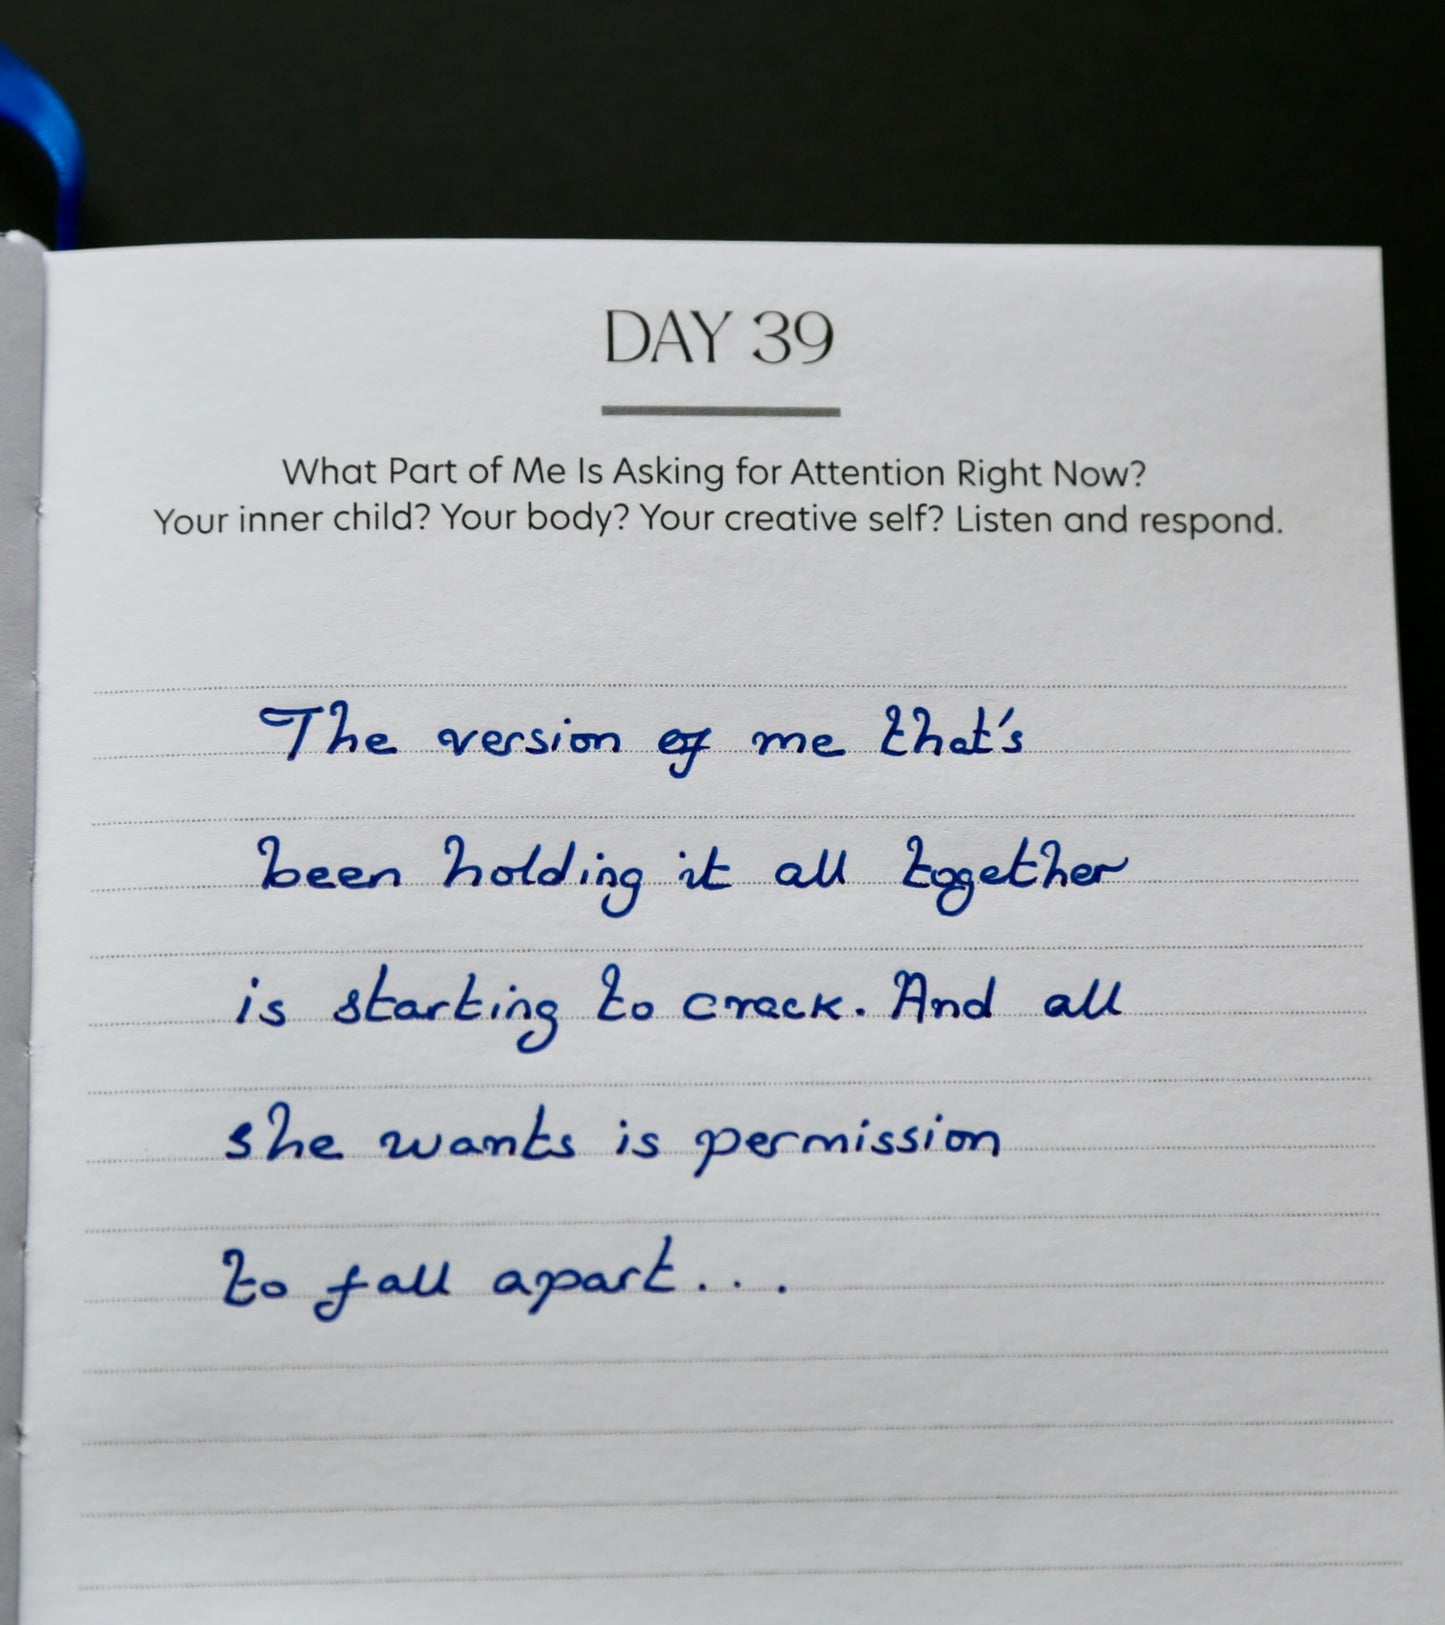 DAY 39
What Part of Me Is Asking for Attention Right Now?
Your inner child? Your body? Your creative self? Listen and respond.
The version of me that's
been holding it all together
is starting to crack. And all
she wants is permission
to fall apart...